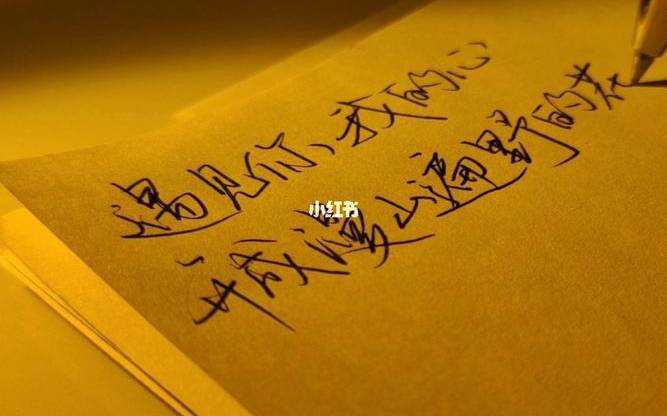 遇见你，我的心
小红书
开成漫山遍野的花